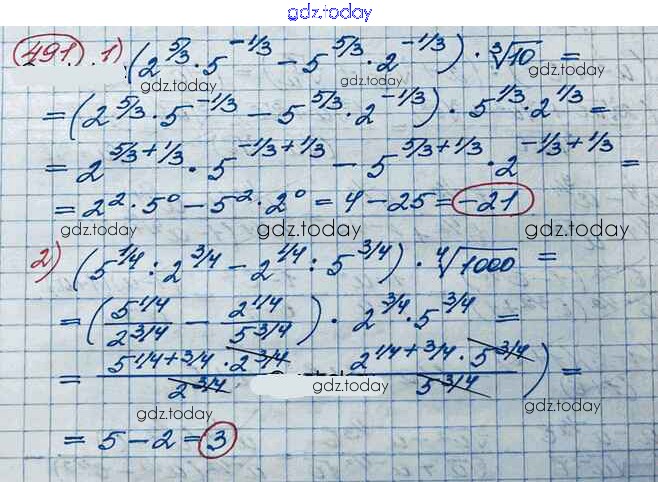 gdz.today
491. 1) (2^{5/3} · 5^{-1/3} - 5^{5/3} · 2^{-1/3}) · ∛10 =
gdz.today gdz.today
= (2^{5/3} · 5^{-1/3} - 5^{5/3} · 2^{-1/3}) · 5^{1/3} · 2^{1/3} =
gdz.today gdz.today gdz.today
= 2^{5/3+1/3} · 5^{-1/3+1/3} - 5^{5/3+1/3} · 2^{-1/3+1/3} =
= 2^2 · 5^0 - 5^2 · 2^0 = 4 - 25 = -21
gdz.today gdz.today gdz.today
2) (5^{1/4} : 2^{3/4} - 2^{1/4} : 5^{3/4}) · ∜1000 =
= (5^{1/4}/2^{3/4} - 2^{1/4}/5^{3/4}) · 2^{3/4} · 5^{3/4} =
gdz.today gdz.today gdz.today
= 5^{1/4+3/4} · 2^{3/4}/2^{3/4} 2^{1/4+3/4} · 5^{3/4}/5^{3/4}) =
gdz.today
gdz.today gdz.today
= 5 - 2 = 3